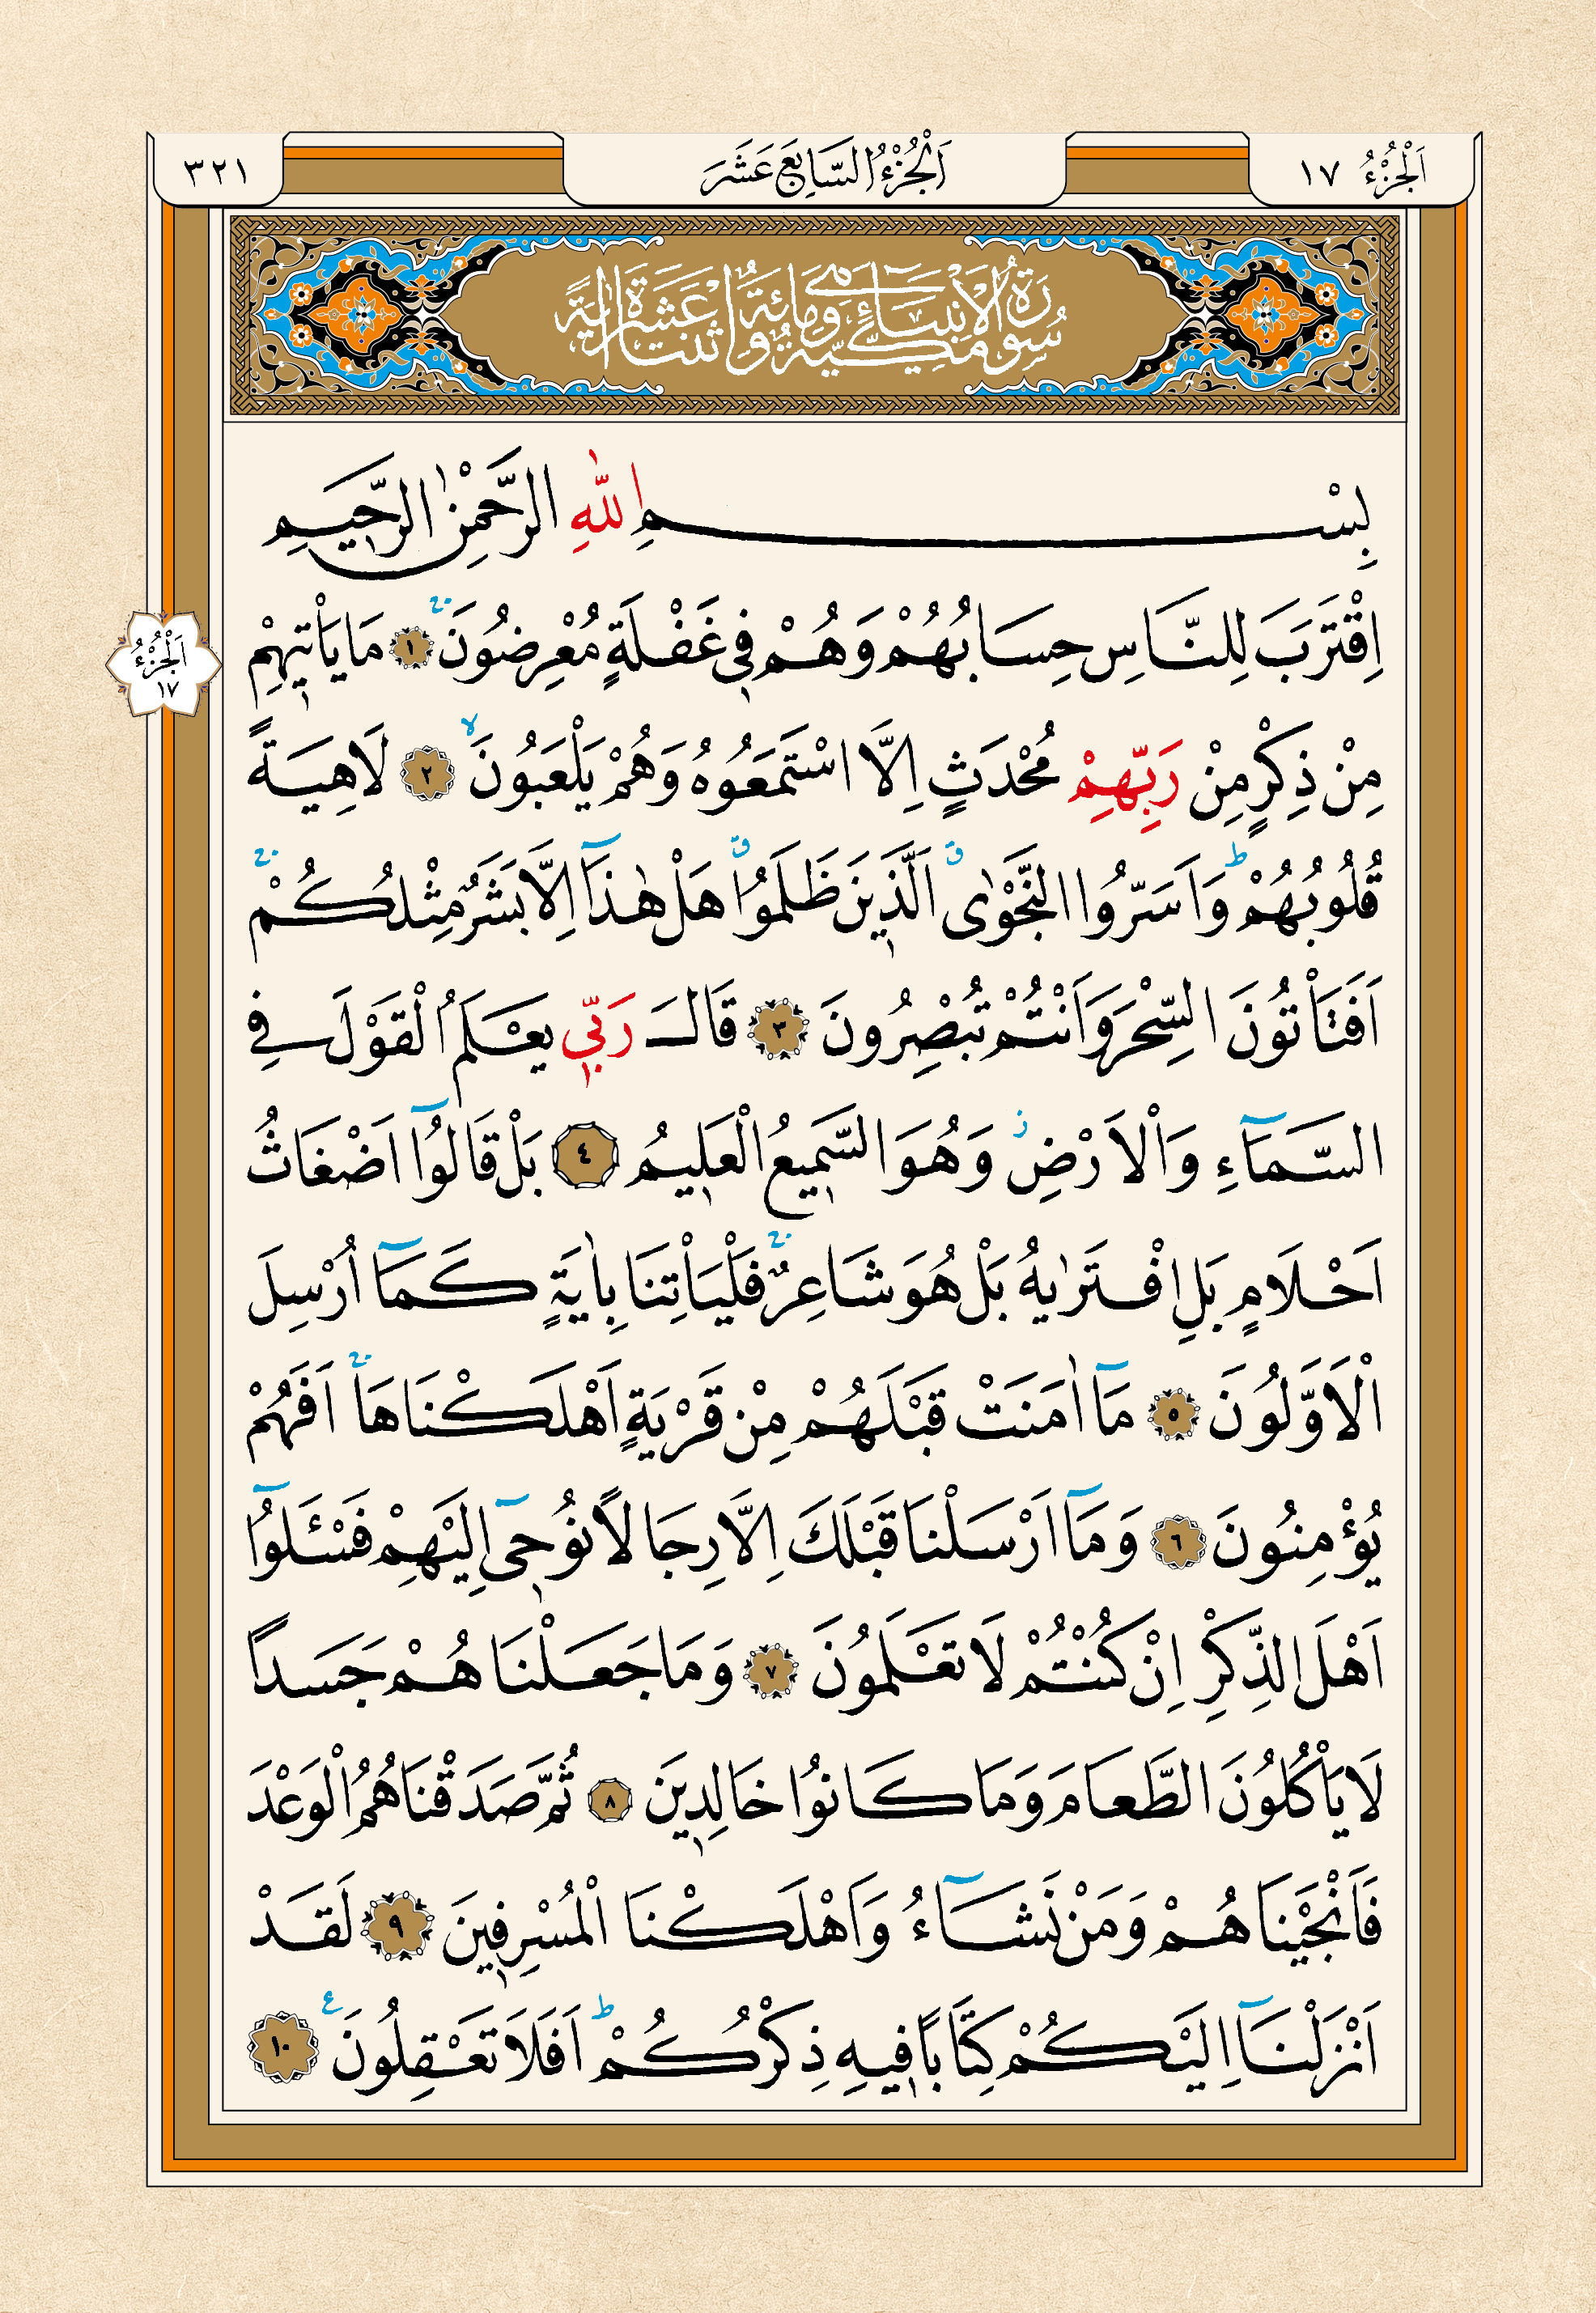 اَلْجُزْءُ ١٧
اَلْجُزْءُ السَّابِعَ عَشَرَ
٣٢١
سُورَةُ الْاَنْبِيَٓاءِ مَكِّيَّةٌ وَهِيَ مِائَةٌ وَاثْنَتَا عَشْرَةَ اٰيَةً
بِسْمِ اللّٰهِ الرَّحْمٰنِ الرَّحٖيمِ
اِقْتَرَبَ لِلنَّاسِ حِسَابُهُمْ وَهُمْ فٖي غَفْلَةٍ مُعْرِضُونَۚ ١ مَا يَأْتٖيهِمْ
مِنْ ذِكْرٍ مِنْ رَبِّهِمْ مُحْدَثٍ اِلَّا اسْتَمَعُوهُ وَهُمْ يَلْعَبُونَۙ ٢ لَاهِيَةً
قُلُوبُهُمْؕ وَاَسَرُّوا النَّجْوٰىۗ اَلَّذٖينَ ظَلَمُواۗ هَلْ هٰذَٓا اِلَّا بَشَرٌ مِثْلُكُمْۚ
اَفَتَأْتُونَ السِّحْرَ وَاَنْتُمْ تُبْصِرُونَ ٣ قَالَ رَبّٖي يَعْلَمُ الْقَوْلَ فِي
السَّمَٓاءِ وَالْاَرْضِؗ وَهُوَ السَّمٖيعُ الْعَلٖيمُ ٤ بَلْ قَالُٓوا اَضْغَاثُ
اَحْلَامٍ بَلِ افْتَرٰيهُ بَلْ هُوَ شَاعِرٌۚ فَلْيَأْتِنَا بِاٰيَةٍ كَمَٓا اُرْسِلَ
الْاَوَّلُونَ ٥ مَٓا اٰمَنَتْ قَبْلَهُمْ مِنْ قَرْيَةٍ اَهْلَكْنَاهَاۚ اَفَهُمْ
يُؤْمِنُونَ ٦ وَمَٓا اَرْسَلْنَا قَبْلَكَ اِلَّا رِجَالًا نُوحٖٓي اِلَيْهِمْ فَسْـَٔلُٓوا
اَهْلَ الذِّكْرِ اِنْ كُنْتُمْ لَا تَعْلَمُونَ ٧ وَمَا جَعَلْنَاهُمْ جَسَدًا
لَا يَأْكُلُونَ الطَّعَامَ وَمَا كَانُوا خَالِدٖينَ ٨ ثُمَّ صَدَقْنَاهُمُ الْوَعْدَ
فَاَنْجَيْنَاهُمْ وَمَنْ نَشَٓاءُ وَاَهْلَكْنَا الْمُسْرِفٖينَ ٩ لَقَدْ
اَنْزَلْنَٓا اِلَيْكُمْ كِتَابًا فٖيهِ ذِكْرُكُمْؕ اَفَلَا تَعْقِلُونَ ع ١٠
اَلْجُزْءُ
١٧